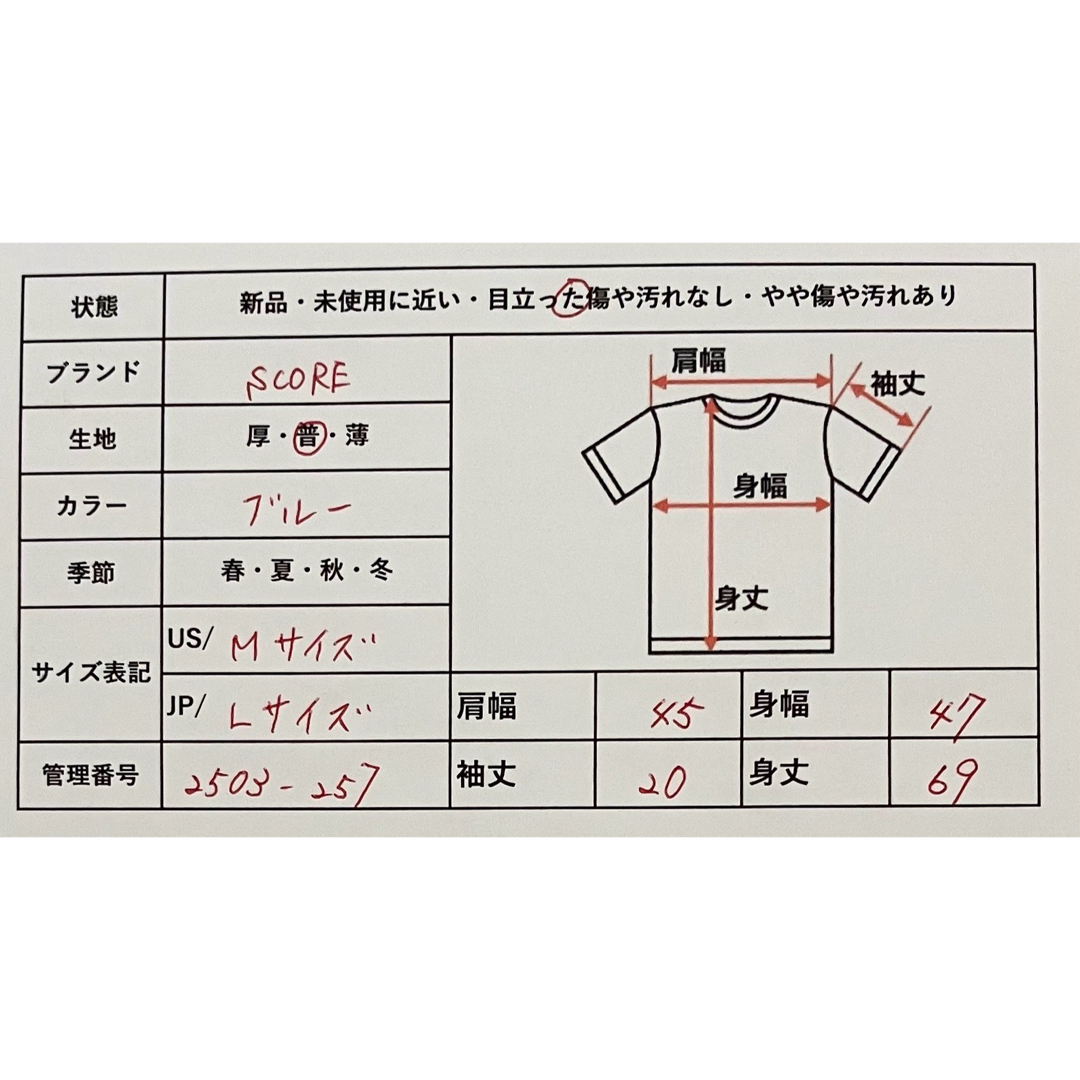 状態 新品・未使用に近い・目立った傷や汚れなし・やや傷や汚れあり
ブランド SCORE
生地 厚・普・薄
カラー ブルー
季節 春・夏・秋・冬
サイズ表記
US/ Mサイズ
JP/ Lサイズ
管理番号 2503-257
肩幅
袖丈
身幅
身丈
肩幅 45 身幅 47
袖丈 20 身丈 69